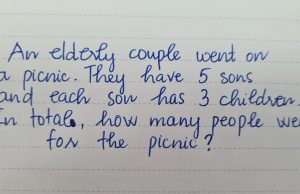 An elderly couple went on
a picnic. They have 5 sons
and each son has 3 children.
In total, how many people we
for the picnic?